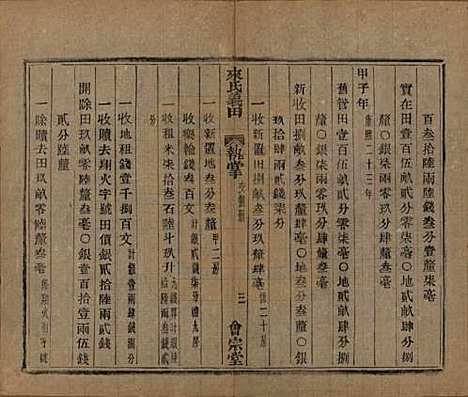 百叁拾陸兩陸錢叁分壹釐柒毫
實在田壹百伍畝貳分零柒毫○地叁畝貳
釐○銀柒兩零玖分肆釐叁毫
甲子年 康熙二十三年
舊管田壹百伍畝貳分零柒毫○地叁畝貳
釐○銀柒兩零玖分肆釐叁毫
新收田捌畝叁分玖釐肆毫○地叁分○銀
玖拾肆兩貳錢柒分
一收新置田捌畝叁分玖釐肆毫
來氏義田
執掌
三
會宗堂
一收新置地叁分
一收
一收租米柒拾叁石陸斗玖升
一收地租錢壹千捌百文
一收去翔火號田價銀貳拾陸兩貳錢
開除田玖畝零陸釐叁毫○銀壹百拾壹兩伍錢
貳分陸釐
一除贖去田玖畝零陸釐叁毫